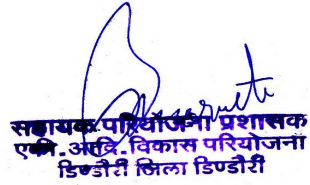 सहायक परियोजना प्रशासक
एकी. आदि. विकास परियोजना
डिण्डौरी जिला डिण्डौरी